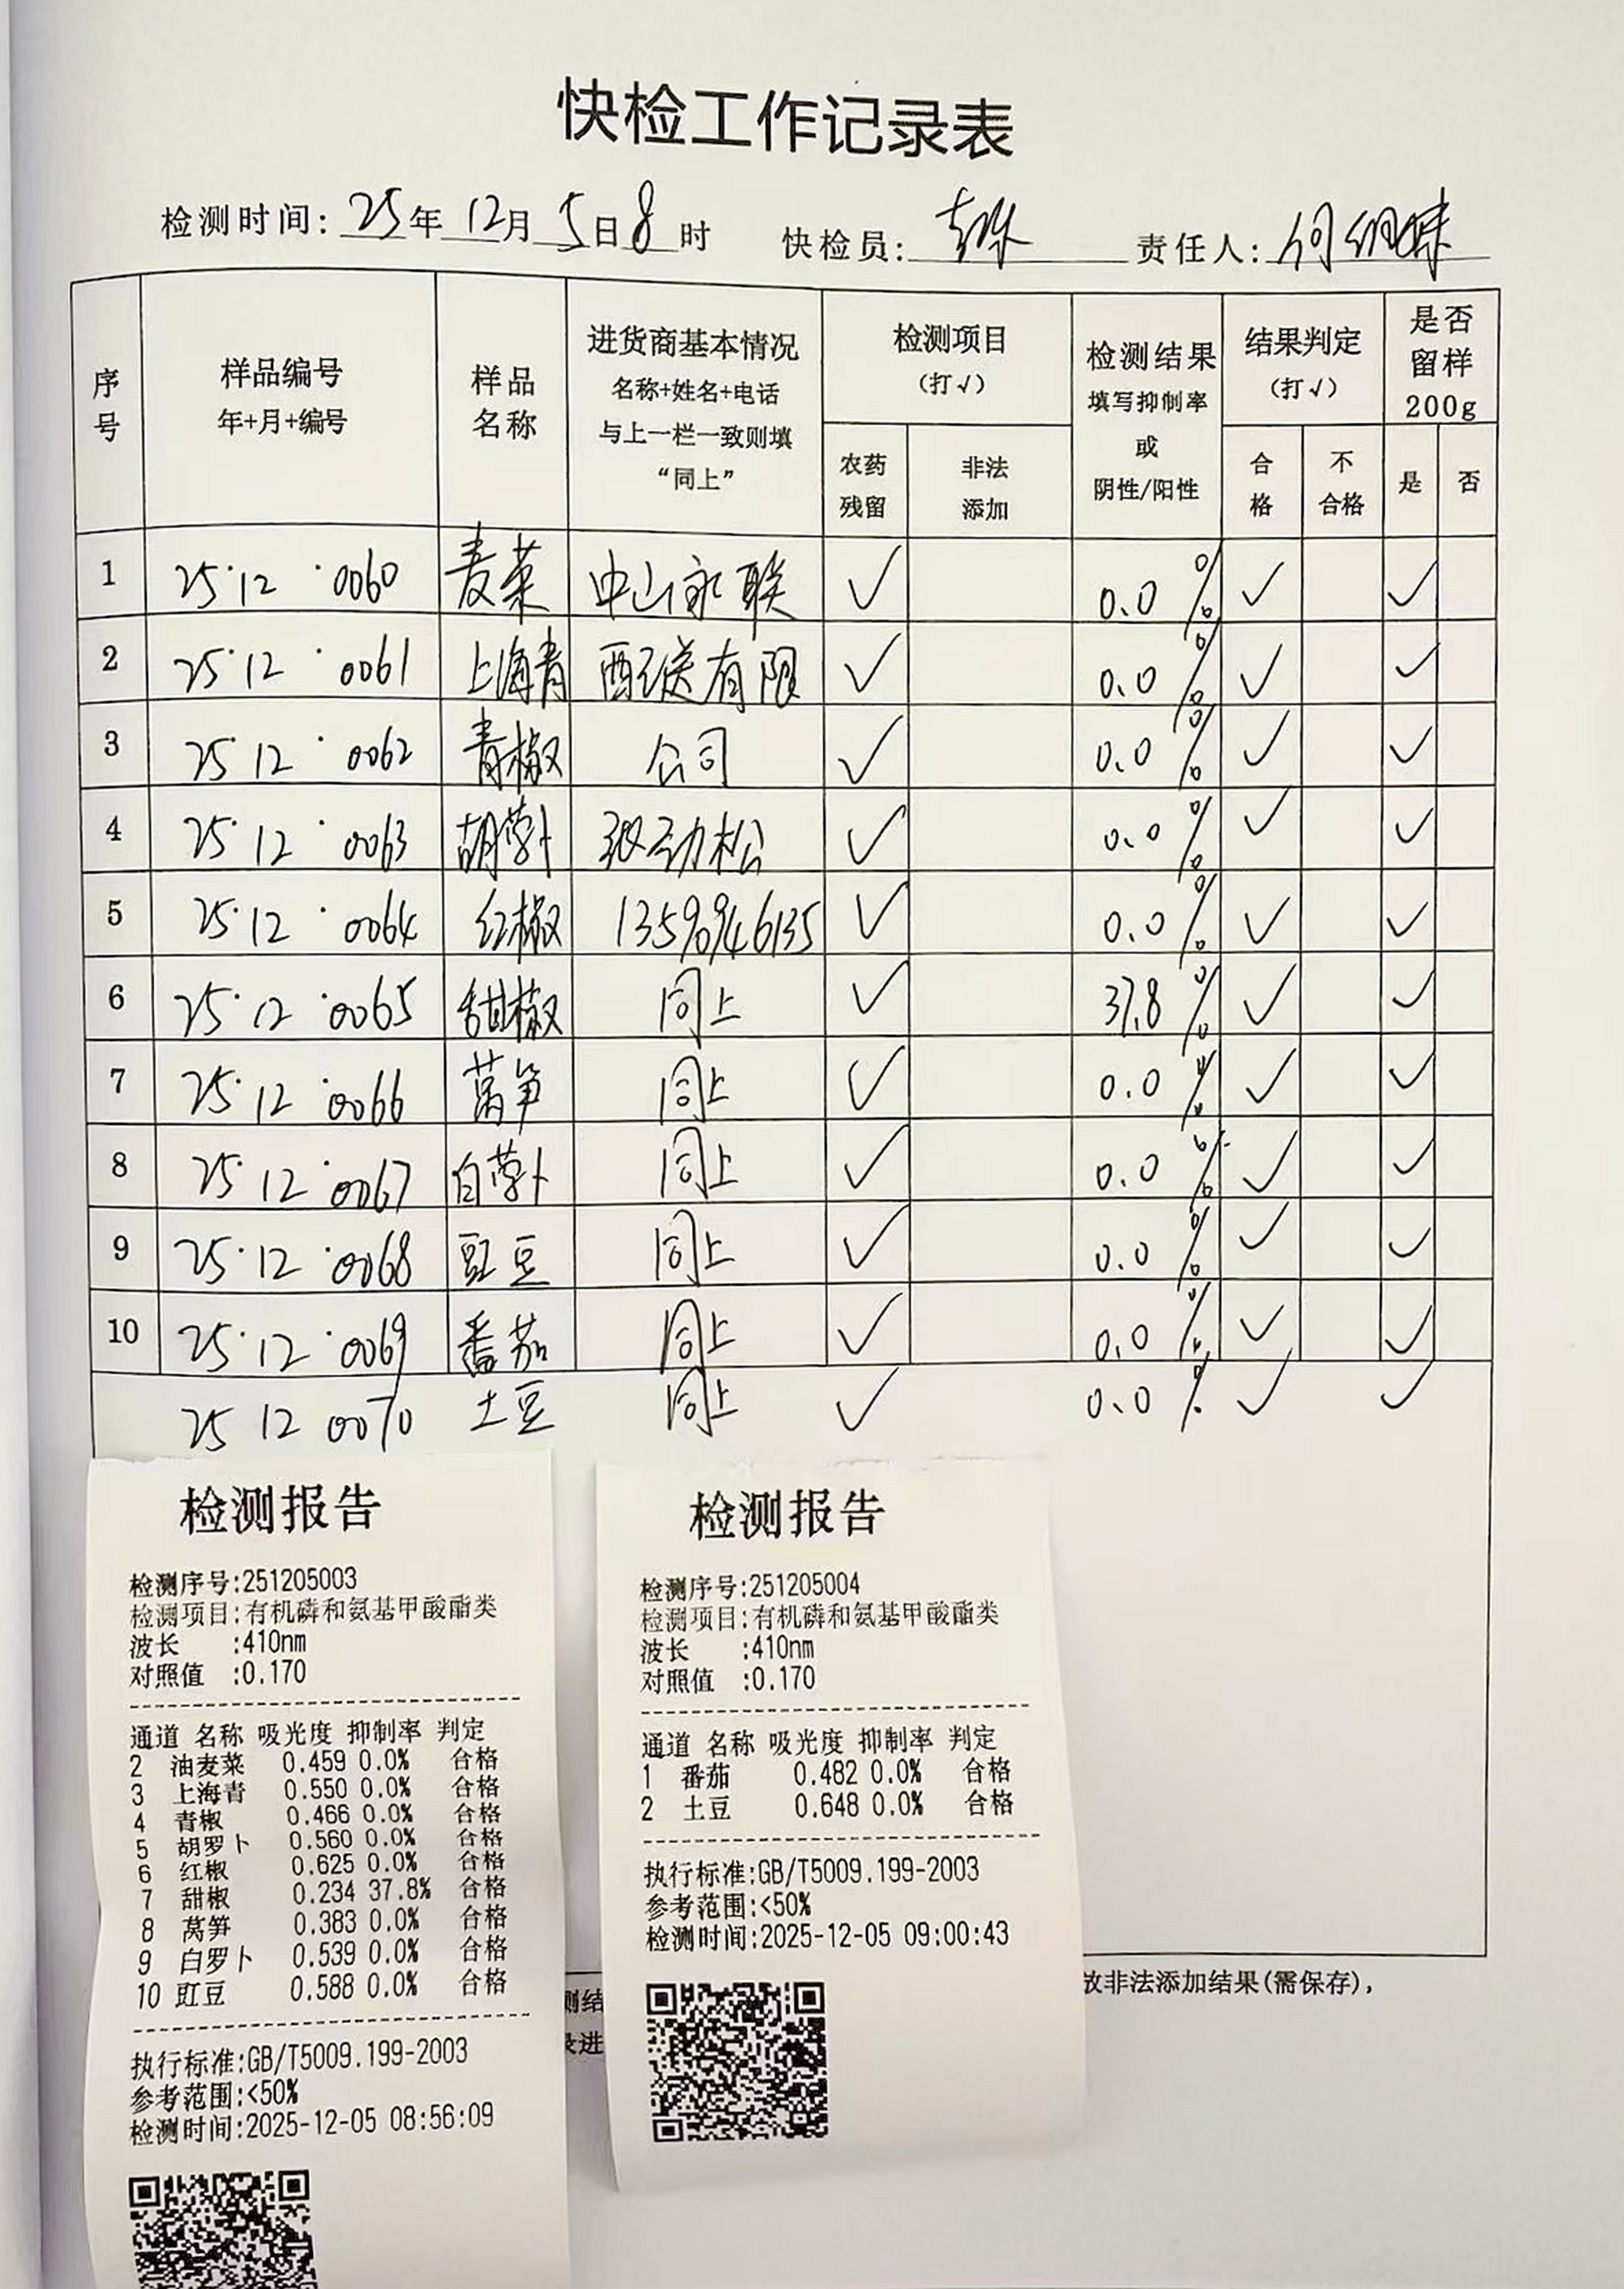 快检工作记录表
检测时间: 25年 12月 5日 8时 快检员: 责任人: 何细妹
序号 样品编号 年+月+编号 样品名称 进货商基本情况 名称+姓名+电话 与上一栏一致则填 “同上” 检测项目 (打√) 农药残留 非法添加 检测结果 填写抑制率 或 阴性/阳性 结果判定 (打√) 合格 不合格 是否留样 200g 是 否
1 25·12·0060 麦菜 中山永联 ✓ 0.0% ✓ ✓
2 25·12·0061 上海青 配送有限 ✓ 0.0% ✓ ✓
3 25·12·0062 青椒 公司 ✓ 0.0% ✓ ✓
4 25·12·0063 胡萝卜 劲松 ✓ 0.0% ✓ ✓
5 25·12·0064 红椒 ✓ 0.0% ✓ ✓
6 25·12·0065 甜椒 同上 ✓ 37.8% ✓ ✓
7 25·12·0066 莴笋 同上 ✓ 0.0% ✓ ✓
8 25·12·0067 白萝卜 同上 ✓ 0.0% ✓ ✓
9 25·12·0068 豇豆 同上 ✓ 0.0% ✓ ✓
10 25·12·0069 番茄 同上 ✓ 0.0% ✓ ✓
25 12 0070 土豆 同上 ✓ 0.0% ✓ ✓
检测报告
检测序号:251205003
检测项目:有机磷和氨基甲酸酯类
波长 :410nm
对照值 :0.170
通道 名称 吸光度 抑制率 判定
2 油麦菜 0.459 0.0% 合格
3 上海青 0.550 0.0% 合格
4 青椒 0.466 0.0% 合格
5 胡罗卜 0.560 0.0% 合格
6 红椒 0.625 0.0% 合格
7 甜椒 0.234 37.8% 合格
8 莴笋 0.383 0.0% 合格
9 白罗卜 0.539 0.0% 合格
10 豇豆 0.588 0.0% 合格
执行标准:GB/T5009.199-2003
参考范围:<50%
检测时间:2025-12-05 08:56:09
检测报告
检测序号:251205004
检测项目:有机磷和氨基甲酸酯类
波长 :410nm
对照值 :0.170
通道 名称 吸光度 抑制率 判定
1 番茄 0.482 0.0% 合格
2 土豆 0.648 0.0% 合格
执行标准:GB/T5009.199-2003
参考范围:<50%
检测时间:2025-12-05 09:00:43
测结 放非法添加结果(需保存),
录进